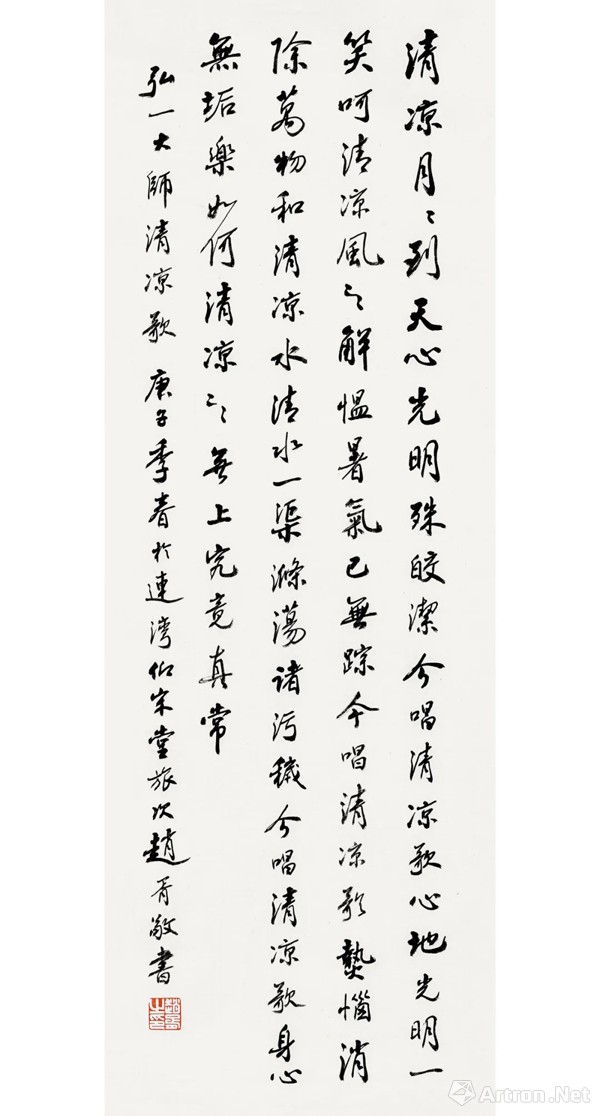 清凉月〻到天心光明殊皎潔今唱清凉歌心地光明一
笑呵清凉風〻解愠暑氣已無踪今唱清凉歌熱惱消
除萬物和清凉水清水一渠滌蕩諸污穢今唱清凉歌身心
無垢樂如何清凉〻無上究竟真常
弘一大師清凉歌 庚子季春於連灣仰宋堂旅次趙胥敬書
趙胥之印
Artron.Net